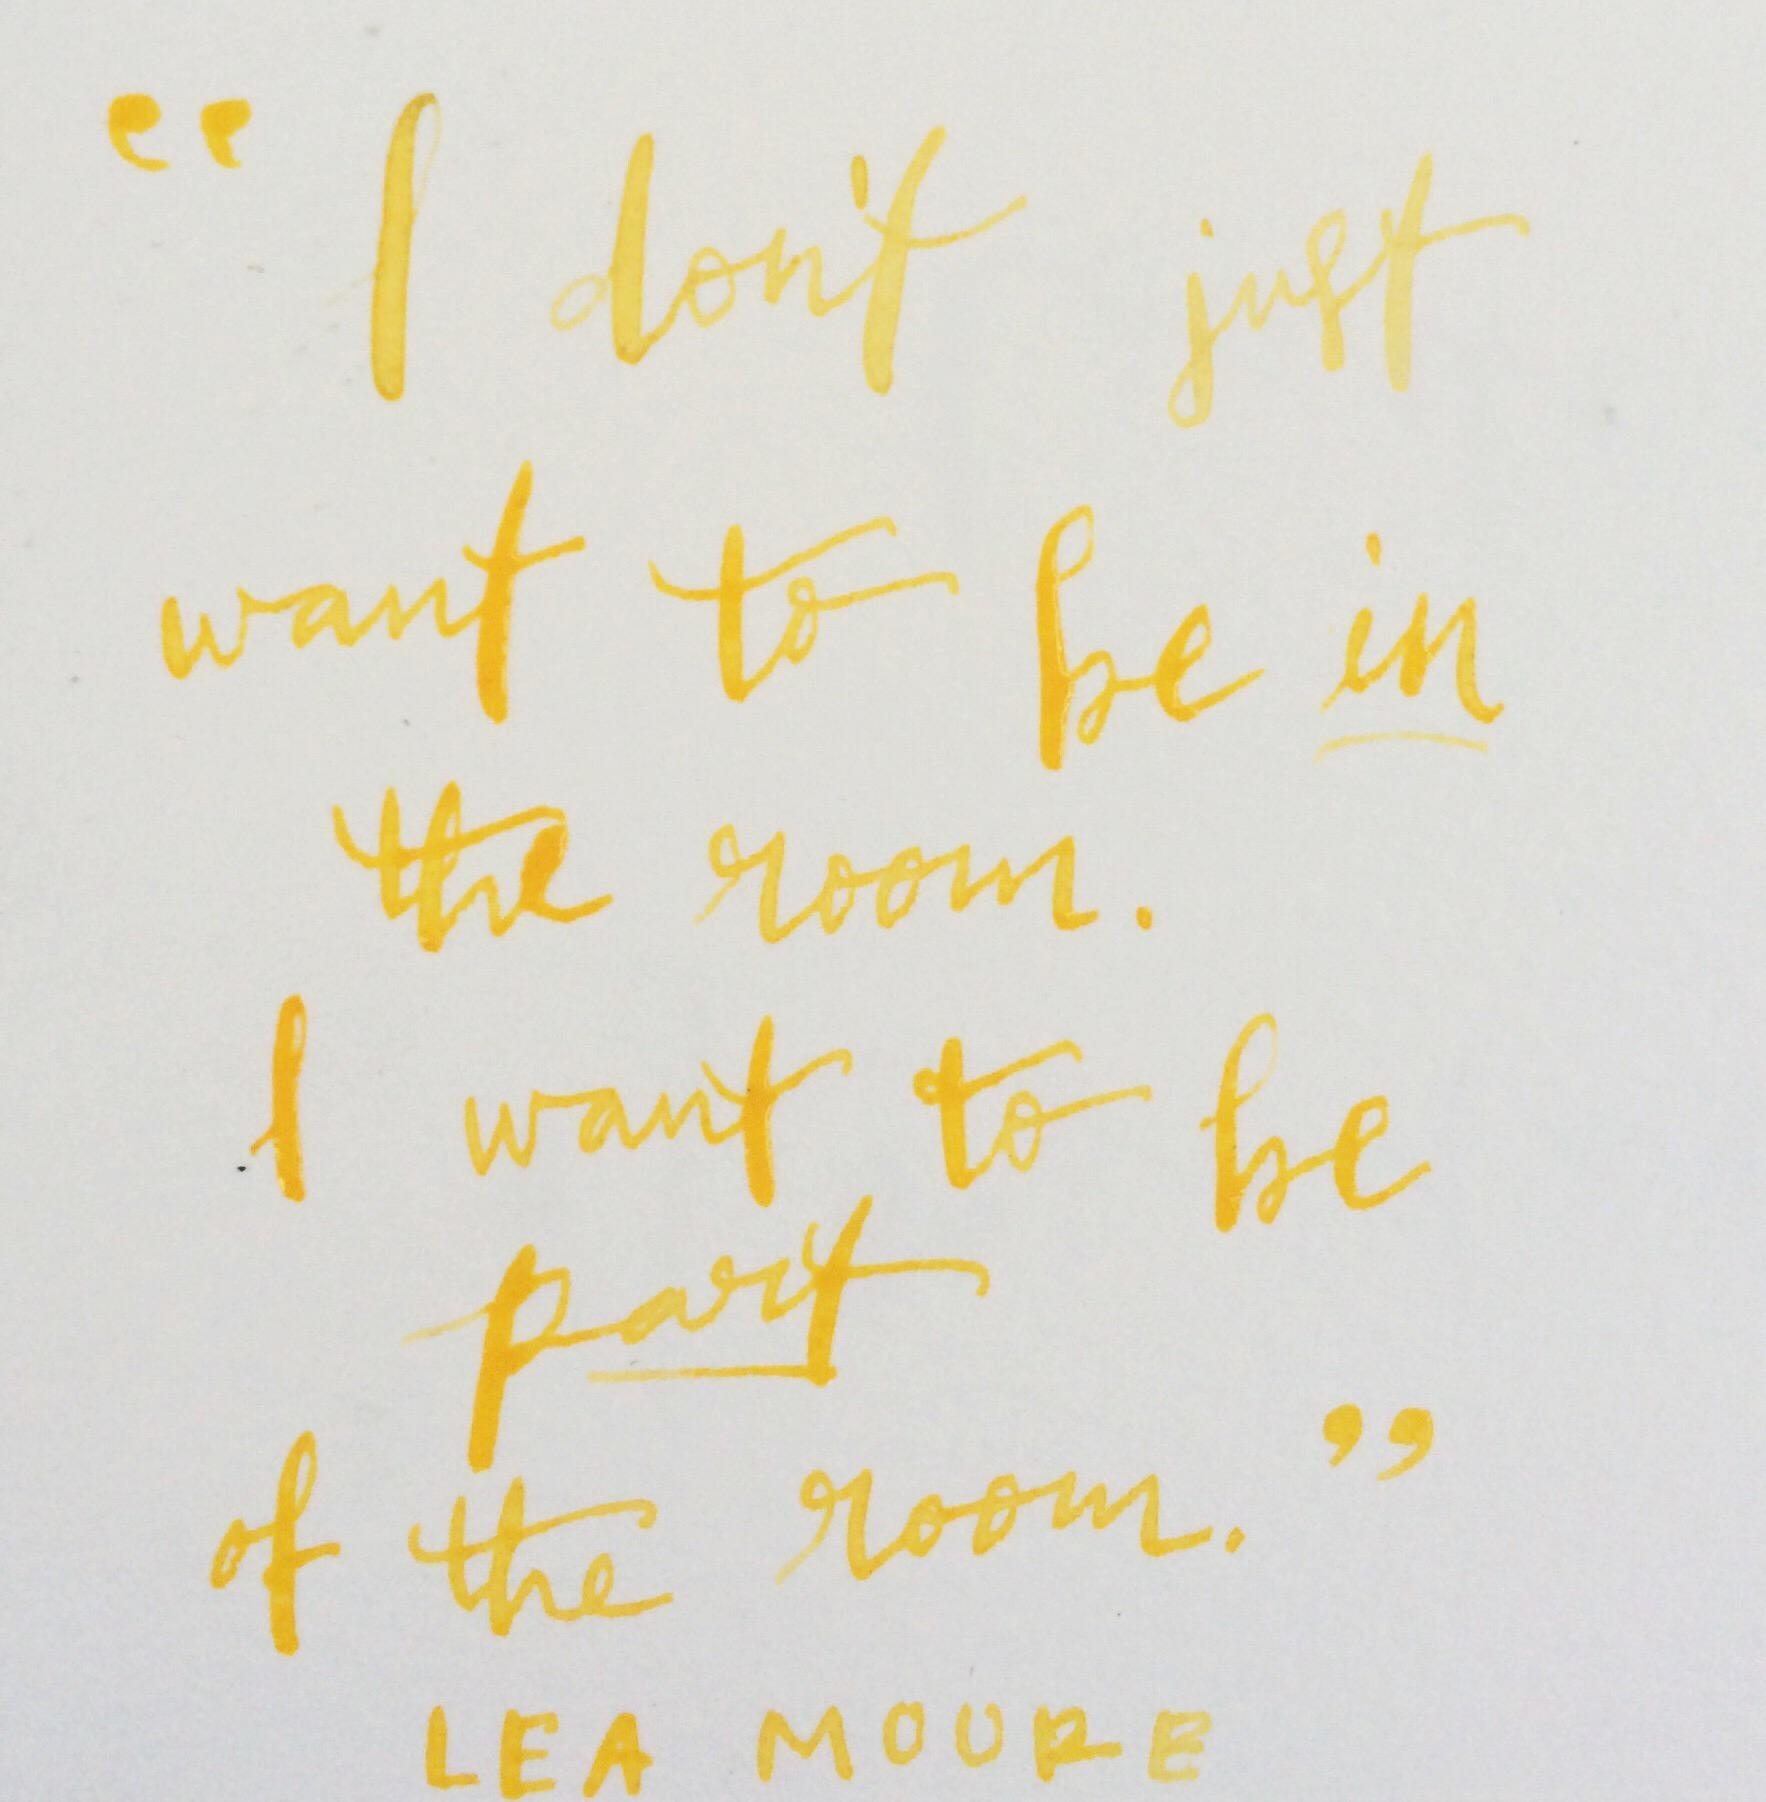 “I don't just
want to be in
the room.
I want to be
part
of the room.”
LEA MOURE